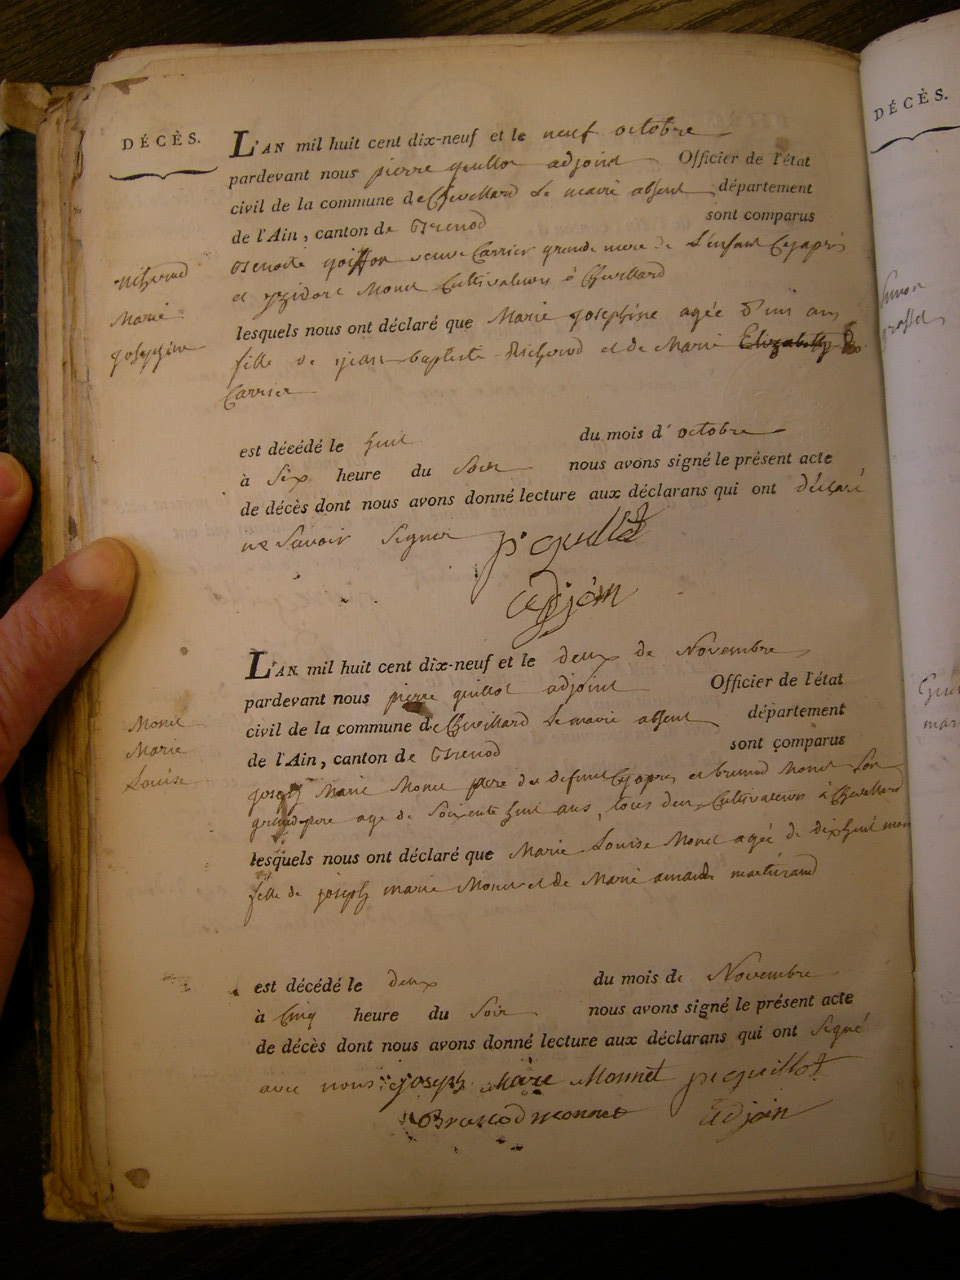 DÉCÈS.
L'AN mil huit cent dix-neuf et le neuf octobre
pardevant nous pierre guillot adjoint Officier de l'état
civil de la commune de Chevillard Le maire absent département
de l'Ain, canton de Brenod sont comparus
Benoite goiffon veuve Carrier grande mere de L'enfant Cyaprès
et Ysidore Monet Cultivateurs à Chevillard
Richerod
Marie
josephine
lesquels nous ont déclaré que Marie josephine agée d'un an
fille de jean baptiste Richerod et de Marie Elizabeth
Carrier
est décédé le huit du mois d'octobre
à Six heure du Soir nous avons signé le présent acte
de décès dont nous avons donné lecture aux déclarans qui ont déclaré
ne Savoir Signer p. guillot
adjoin
L'AN mil huit cent dix-neuf et le deux de Novembre
pardevant nous pierre guillot adjoint Officier de l'état
civil de la commune de Chevillard Le maire absent département
de l'Ain, canton de Brenod sont comparus
Monet
Marie
Louise
joseph Marie Monet pere du defunt Cyaprès et brunod Monet Son
grand-pere age de Soixente huit ans, tous deux Cultivateurs à Chevillard
lesquels nous ont déclaré que Marie Louise Monet agée de dixhuit mois
fille de joseph marie Monet et de Marie amande maturand
est décédé le deux du mois de Novembre
à Cinq heure du Soir nous avons signé le présent acte
de décès dont nous avons donné lecture aux déclarans qui ont Signé
avec nous joseph Marie Monnet p. guillot
monnet adjoin
DÉCÈS.